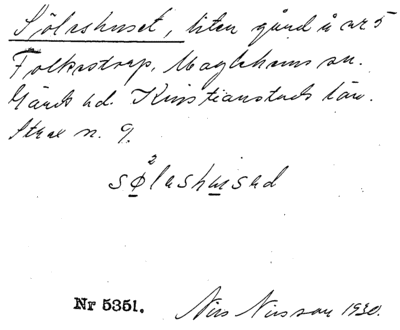 Sölashuset, liten gård å nr 5
Folkestorp, Maglehems sn.
Gärds hd. Kristianstads län.
Strax n. 9.
sø²lashusad
Nr 5351. Nils Nilsson 1930.